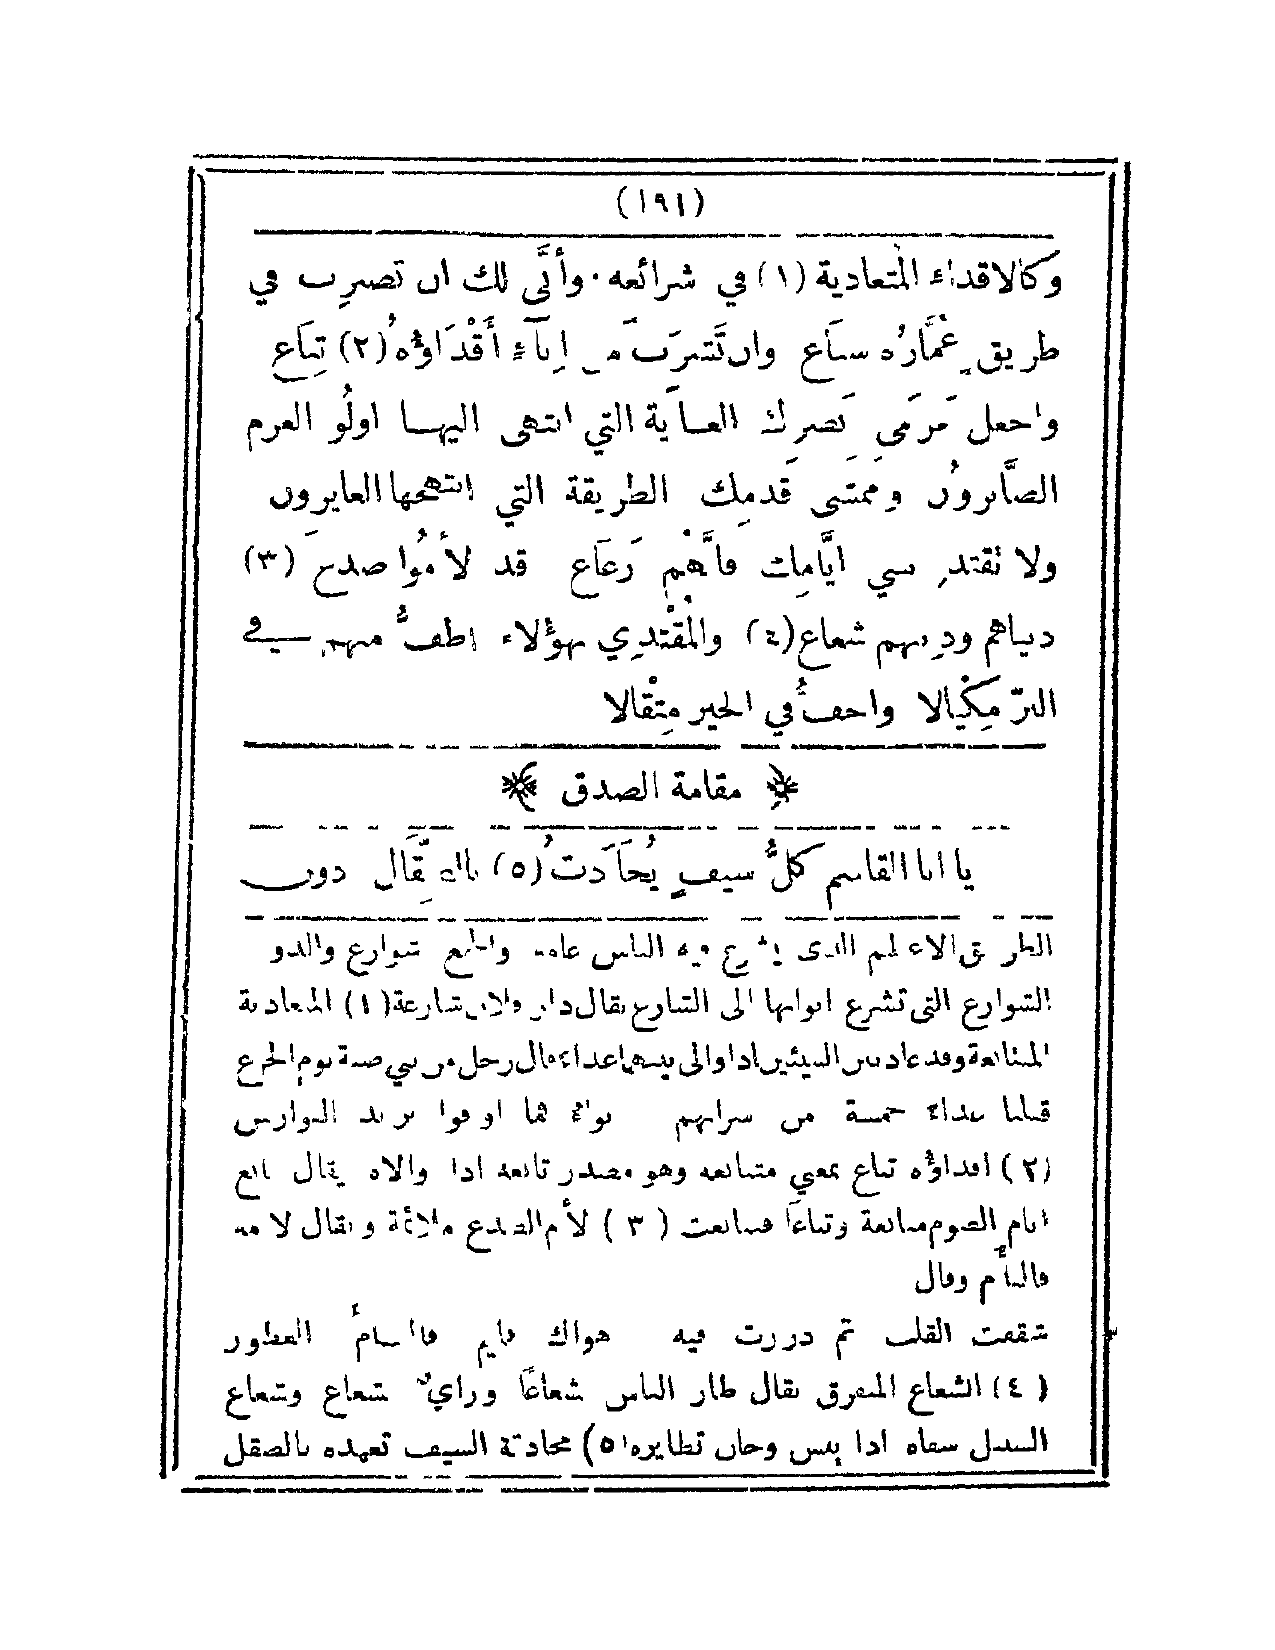 (١٩١)
وكالاقداء المتعادية (١) في شرائعه. وأنَّى لك ان تصرِب في
طريقٍ عُمَّارُه سبَاع وان تَتسرَّبَ من إبآءِ أَقْدَاؤُهُ (٢) تِبَاع
واجعل مَرمَى بَصرِك الغاَية التي انتهى اليها اولُو العزم
الصَّابرونُ وممشَى قَدمِك الطريقة التي انتهجها العابرون
ولا تقتدِ ببني ايَّامِك فاِنَّهُم رَعَاع قد لأمُوا صدعَ (٣)
دنياهم ودينهم شعاع (٤) والمُقْتدِي بهؤلاء اطفُّ منهم في
البرّ مِكْيالا واخفُّ في الخير مِثْقالا
مقامة الصدق
يا ابا القاسم كلُّ سيفٍ يُحَادَثُ (٥) بالصِّقَال دون
الطريق الاعظم الذي يشرع فيه الناس عامة والجمع شوارع والدو
الشوارع التي تشرع ابوابها الى الشارع يقال دار فلان شارعة (١) المتعادية
المتتابعة وقد عادى بين الشيئين اذا والى بينهما عداء قال رجل من بني ضبة يوم الجزع
قتلنا عداء خمسة من سراتهم
(٢) اقداؤه تباع بمعنى متتابعة وهو مصدر تابعه اذا والاه يقال تابع
ايام الصوم متابعة وتباعَاً فتتابعت (٣) لأم الصدع ملائمة ويقال لا مه
فالتأم وقال
شققت القلب ثم دررت فيه هواك فليم فالتأم الفطور
(٤) الشعاع المتفرق يقال طار الناس شعاعَاً وراي شعاع وشعاع
السنبل سفاه اذا يبس وحان تطايره (٥) محادثة السيف تعهده بالصقل